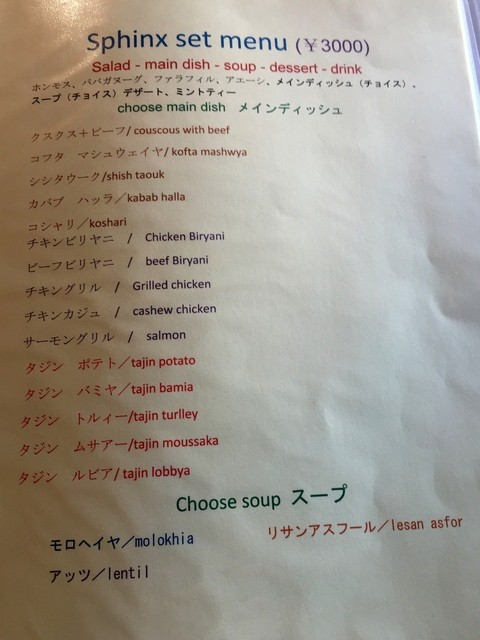 Sphinx set menu (￥3000)
Salad - main dish - soup - dessert - drink
ホンモス、ババガヌーグ、ファラフィル、アエーシ、メインディッシュ（チョイス）、
スープ（チョイス）デザート、ミントティー
choose main dish　メインディッシュ
クスクス＋ビーフ/ couscous with beef
コフタ　マシュウェイヤ/ kofta mashwya
シシタウーク/shish taouk
カバブ　ハッラ／kabab halla
コシャリ／koshari
チキンビリヤニ　/　Chicken Biryani
ビーフビリヤニ　/　beef Biryani
チキングリル　/　Grilled chicken
チキンカジュ　/　cashew chicken
サーモングリル　/　salmon
タジン　ポテト／tajin potato
タジン　バミヤ／tajin bamia
タジン　トルィー/tajin turlley
タジン　ムサアー/tajin moussaka
タジン　ルビア/ tajin lobbya
Choose soup スープ
モロヘイヤ／molokhia
リサンアスフール／lesan asfor
アッツ／lentil